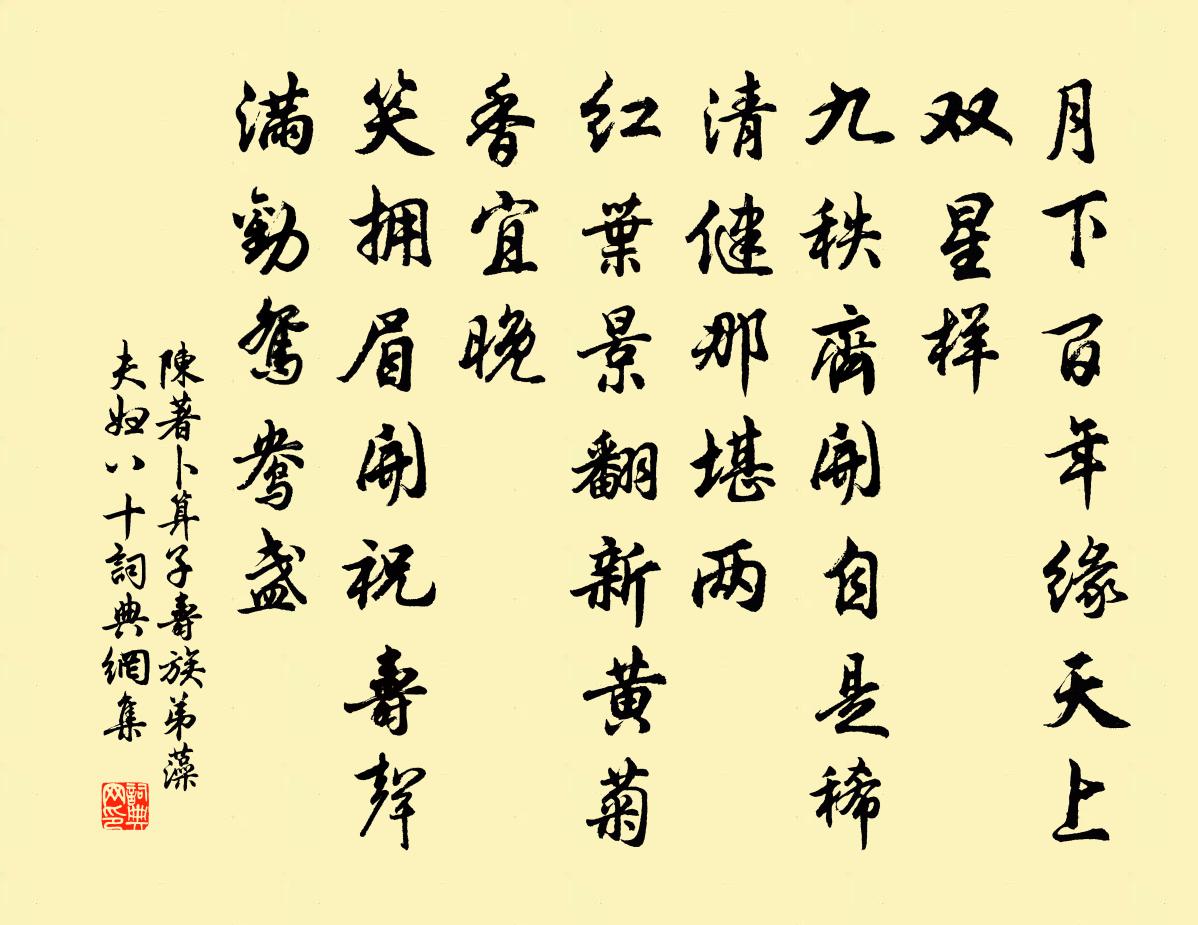 月下百年缘天上
双星样
九秩齊開自是稀
清健那堪两
红葉景翻新黄菊
香宜晚
笑拥眉開祝壽聲
满勸鴛鴦盏
陳著卜算子壽族弟藻
夫妇八十詞典網集
詞典网印